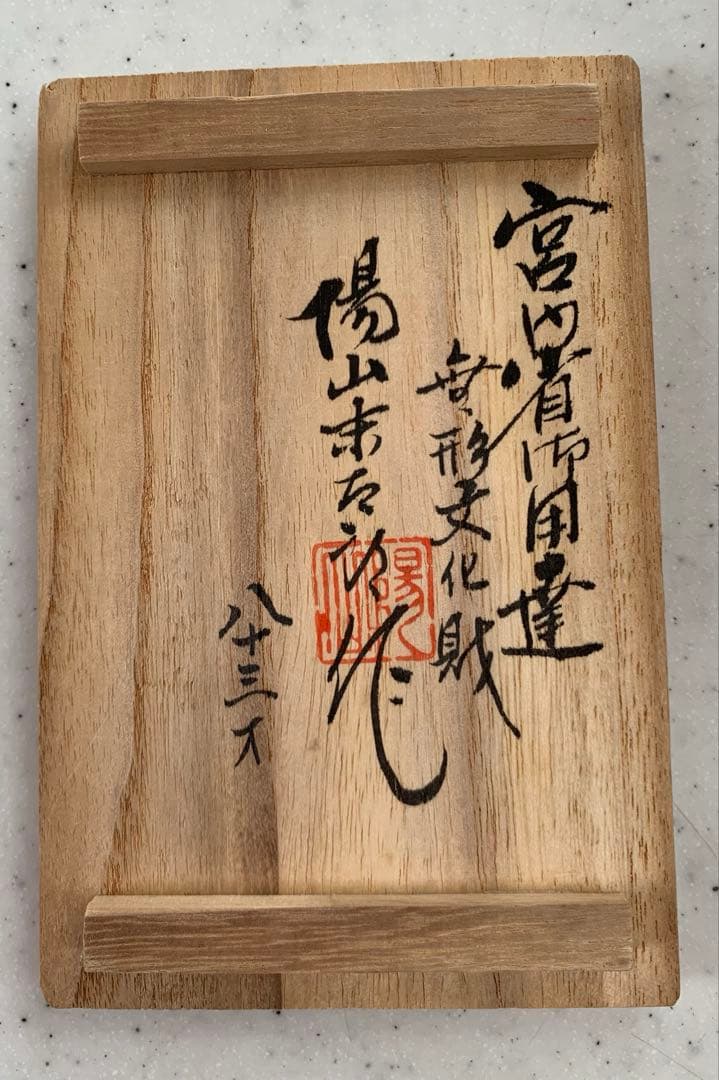 宮内省御用達
無形文化財
陽山末太郎作
八十三才